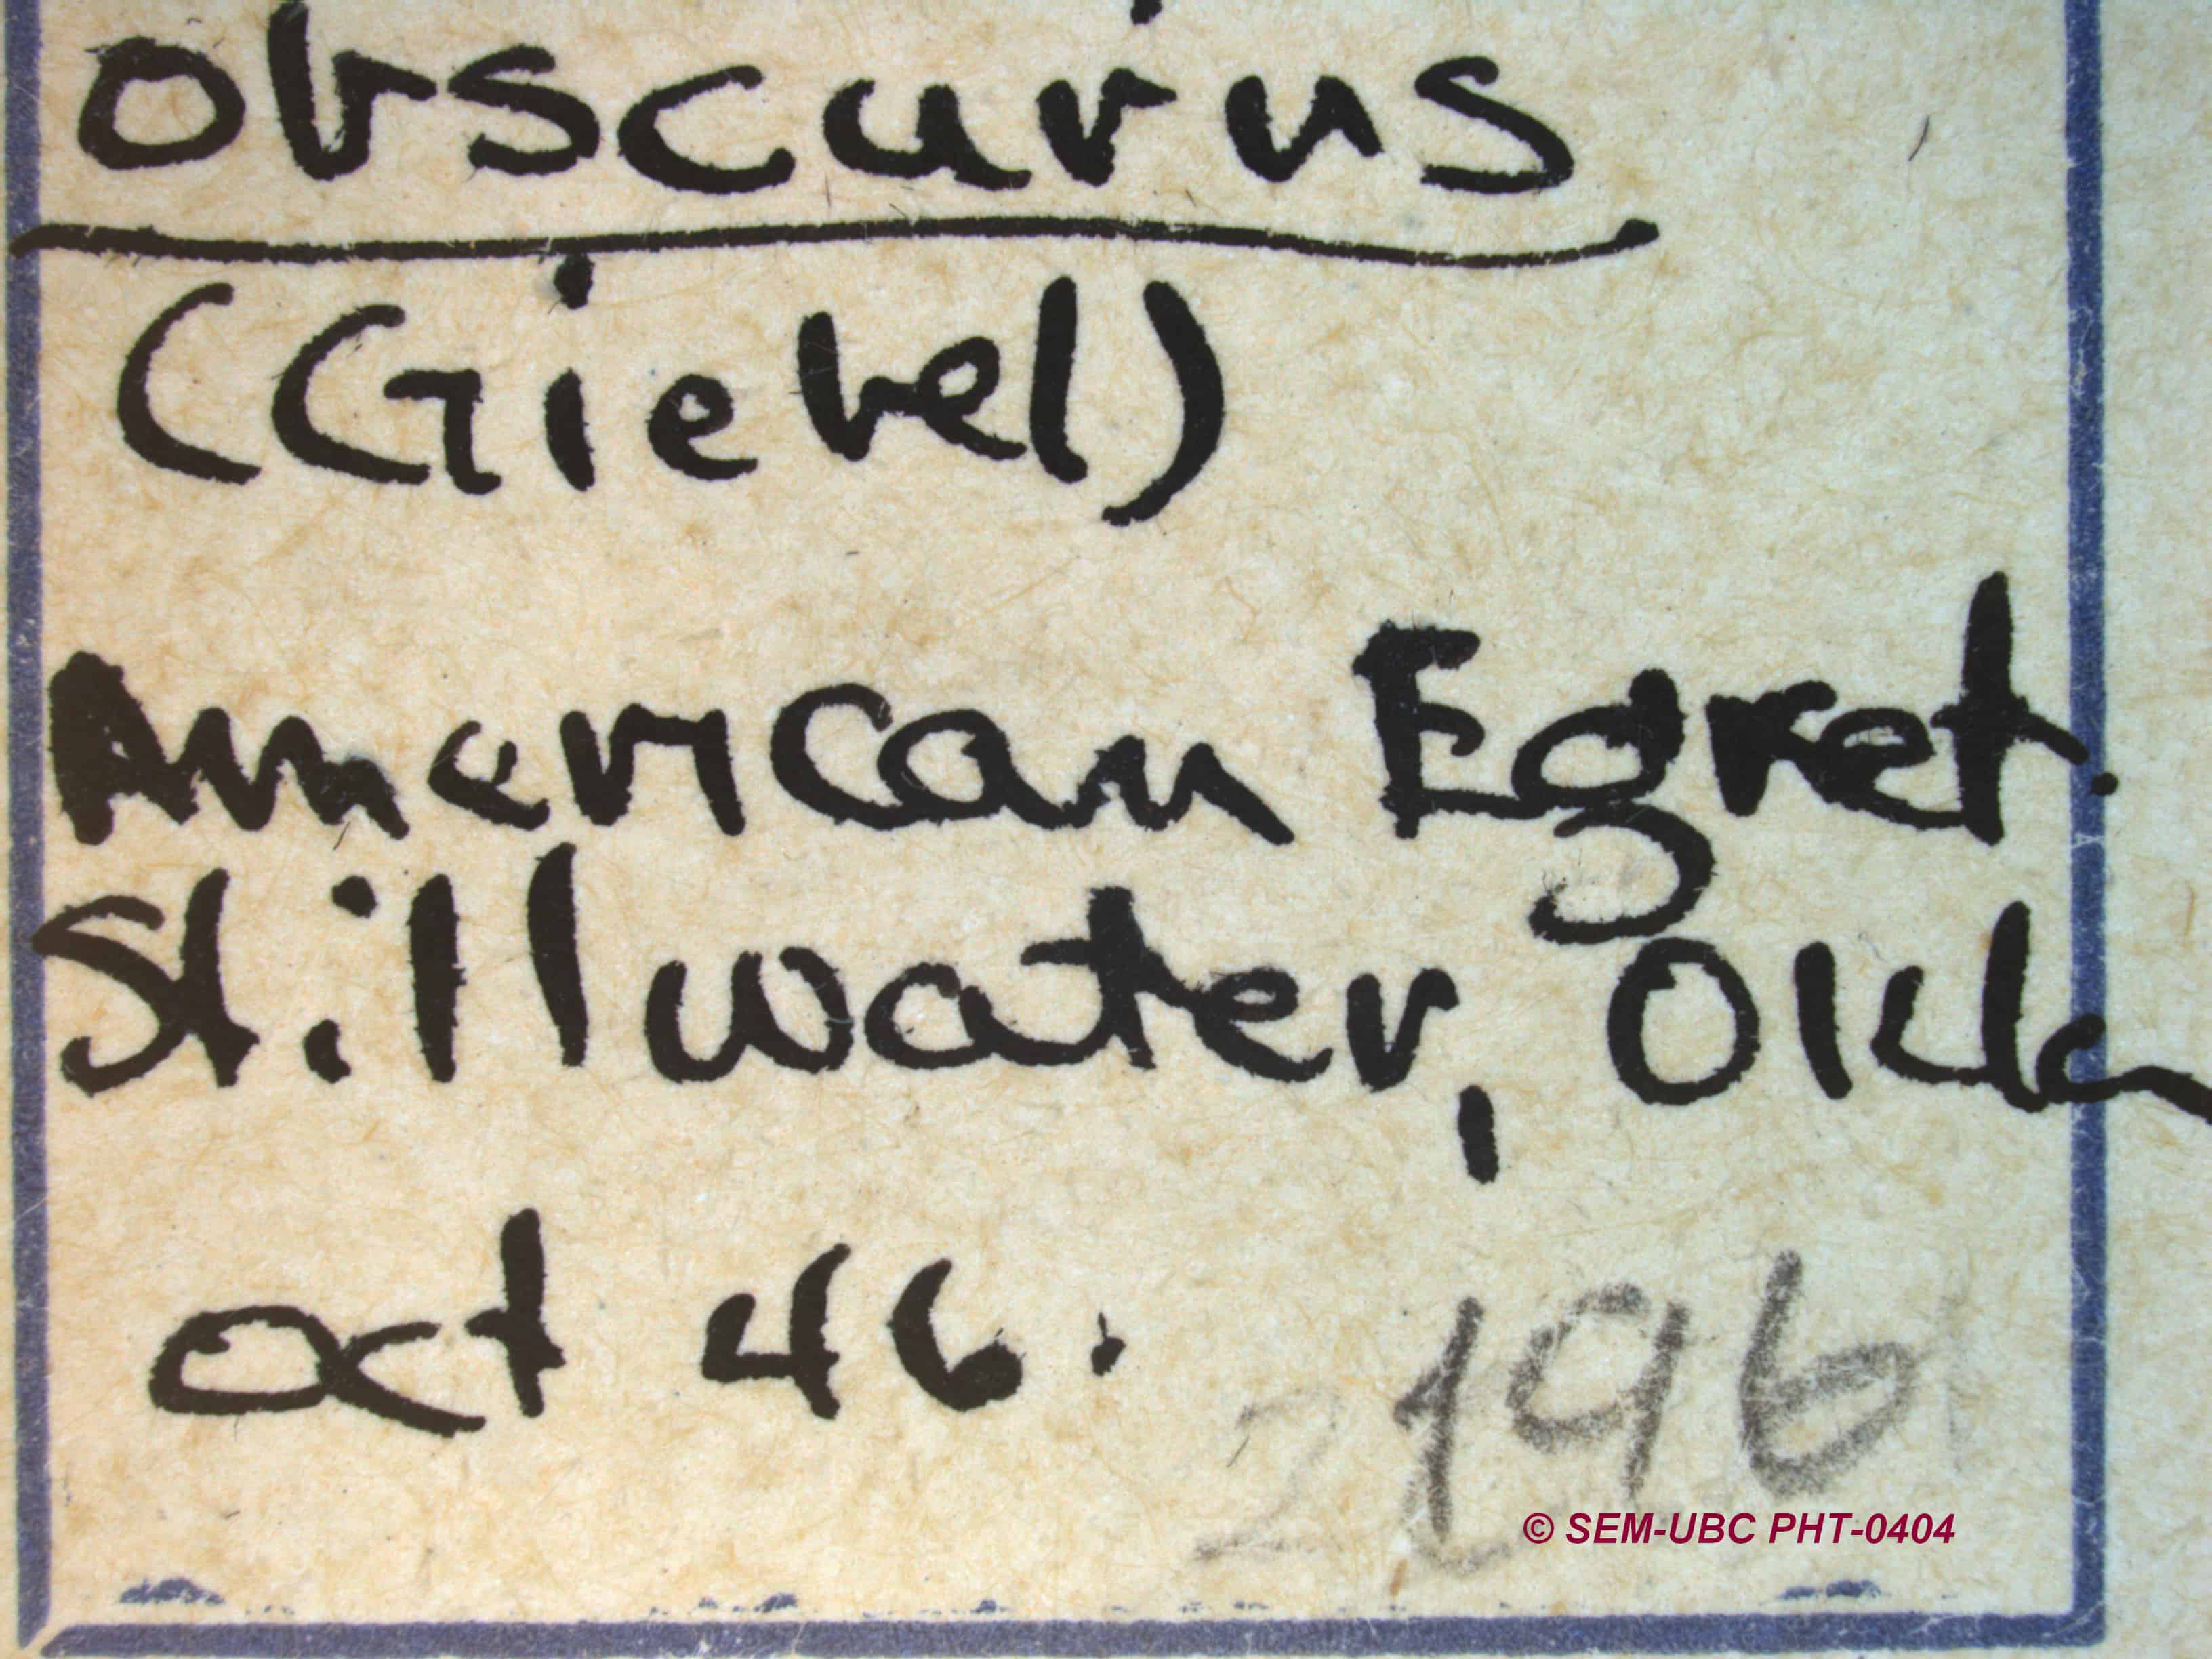 obscurus
(Giebel)
American Egret.
Stillwater, Okla
Oct 46.
196
© SEM-UBC PHT-0404